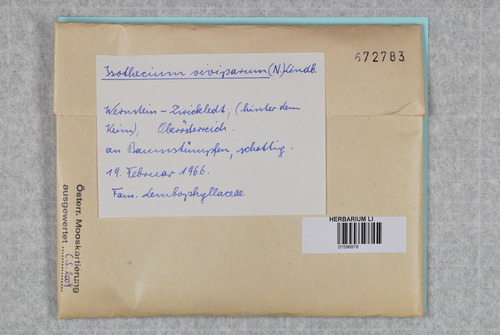 672783
Isothecium viviparum (N.) Lindb.
Wernstein - Zwickledt, (hinter dem
Keim), Oberösterreich.
an Baumstümpfen, schattig.
19. Februar 1966.
Fam. Lembophyllaceae
HERBARIUM LI
01596876
Österr. Mooskartierung
ausgewertet